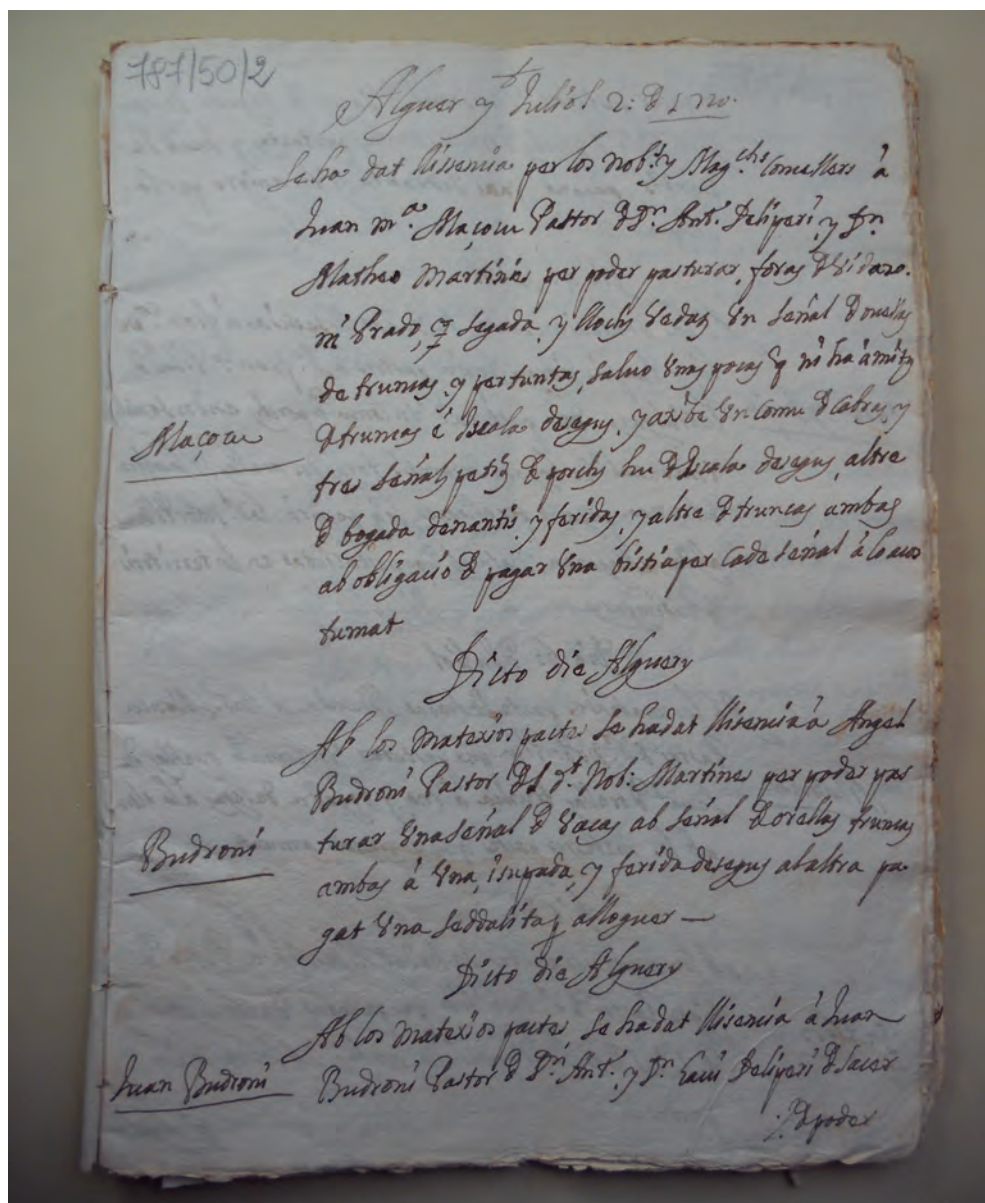 787/50/2
Alguer y Juliol 2: d 1720.
Se ha dat llisensia per los nob.s y Mag.chs Consellers à
Juan m.a Maçocu Pastor d D.n Ant.t Deliperi, y D.n
Matheo Martines per poder pasturar, foras d
ni Prado, segada, y llochs Vedaz Un señal d ouellas
de truncas, y pertuntas, saluo Unas pocas q ni ha
Maçocu
d truncas é Iscala desegus, y Un comu d Cabras, y
tres señals petits d porchs hu d Iscala desegus, altre
d bogada denantis, y feridas, y altre d truncas ambas
ab obligació d pagar Una bistia per Cade señal à lo acos
tumat
Dicto die Alguery
Ab los matexos pactes Se ha dat llisensia à Angel
Budroni Pastor del d.t Nob: Martines per poder pas
turar Una señal d Vacas ab señal d orellas truncas
Budroni
ambas à Una, isupada, y ferida desegus al altra pa
gat Una Seddalita p alloguer —
Dicto die Alguery
Ab los matexos pactes Se ha dat llisensia à Juan
Juan Budroni
Budroni Pastor d D.n Ant.t y D.n Gaui Deliperi d Sacer
p poder